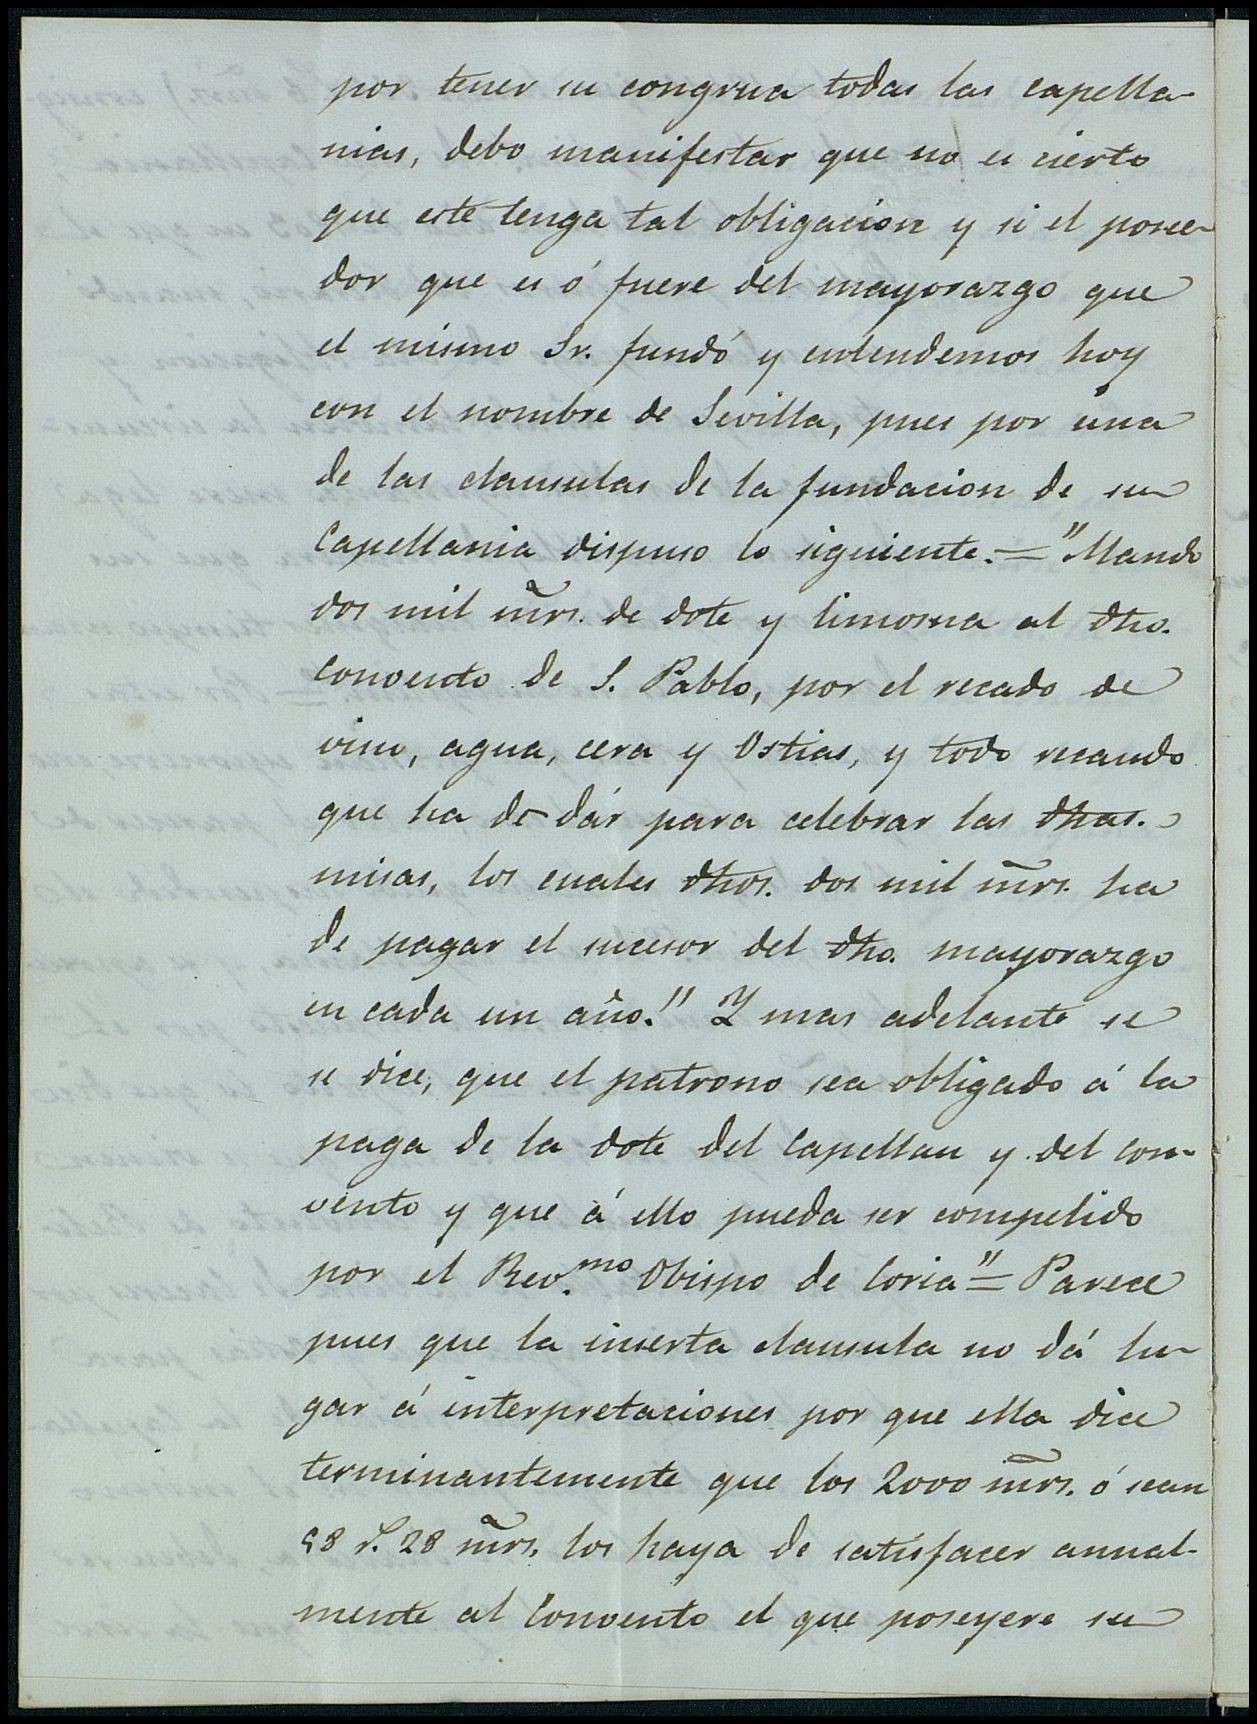 por tener su congrua todas las capella-
nias, debo manifestar que no es cierto
que este tenga tal obligacion y si el posee-
dor que es ó fuere del mayorazgo que
el mismo Sr. fundó y entendemos hoy
con el nombre de Sevilla, pues por una
de las clausulas de la fundacion de su
Capellania dispuso lo siguiente.="Mando
dos mil mrs. de dote y limosna al dho.
convento de S. Pablo, por el recado de
vino, agua, cera y Ostias, y todo recaudo
que ha de dár para celebrar las dhas.
misas, los cuales dhos. dos mil mrs. ha
de pagar el sucesor del dho. mayorazgo
en cada un año." Y mas adelante se
se dice, que el patrono sea obligado á la
paga de la dote del Capellan y del con-
vento y que á ello pueda ser compelido
por el Rev.mo Obispo de Coria"= Parece
pues que la inserta clausula no dá lu-
gar á interpretaciones por que ella dice
terminantemente que los 2000 mrs. ó sean
58 r. 28 mrs. los haya de satisfacer annal-
mente al Convento el que poseyere su